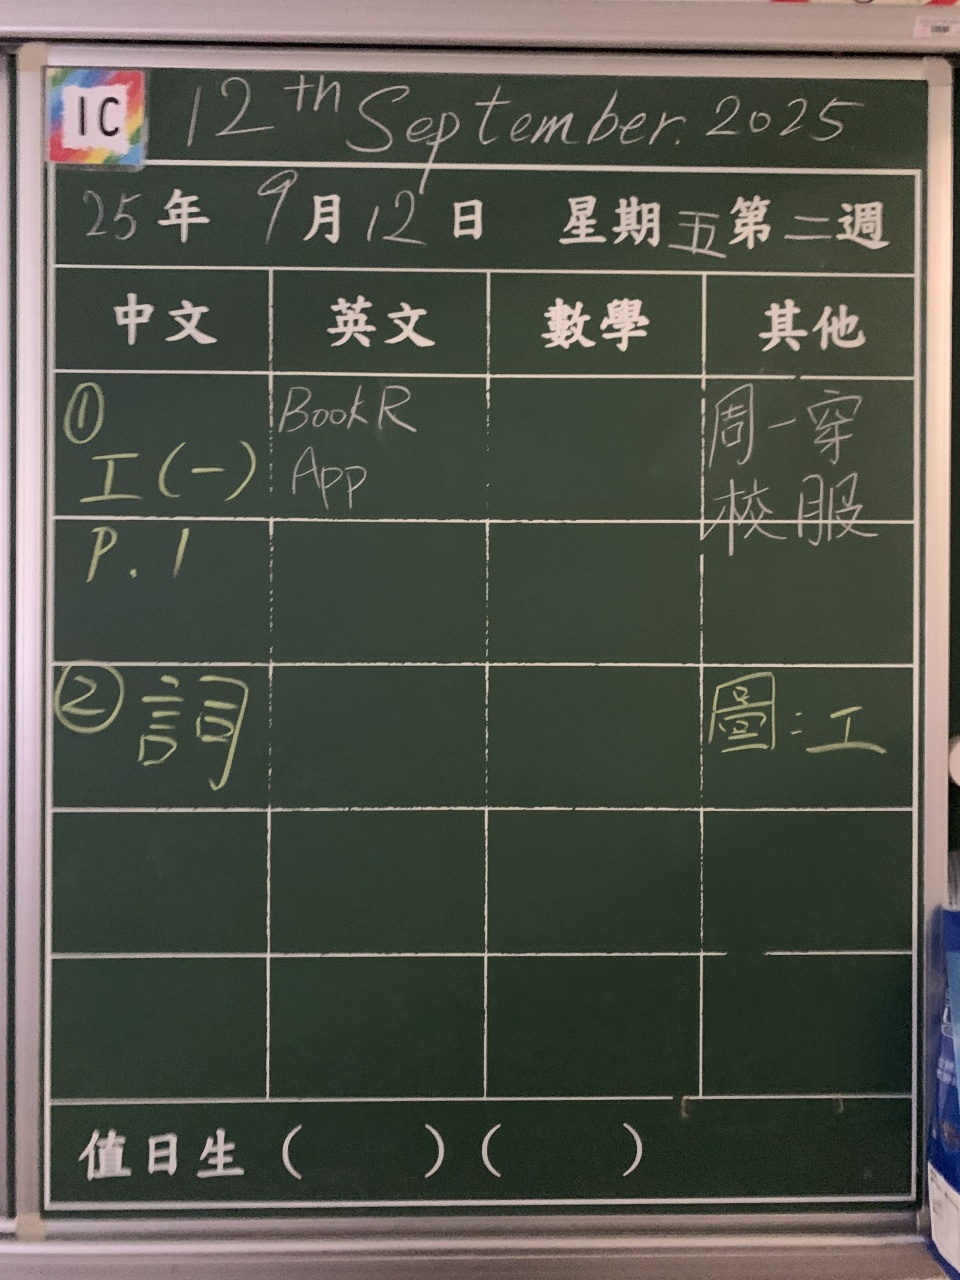 1C
12th September. 2025
25年 9月12日 星期五第二週
中文 英文 數學 其他
①
工(一)
P. 1
② 詞
BookR
App
周一穿
校服
圖:工
值日生 ( ) ( )